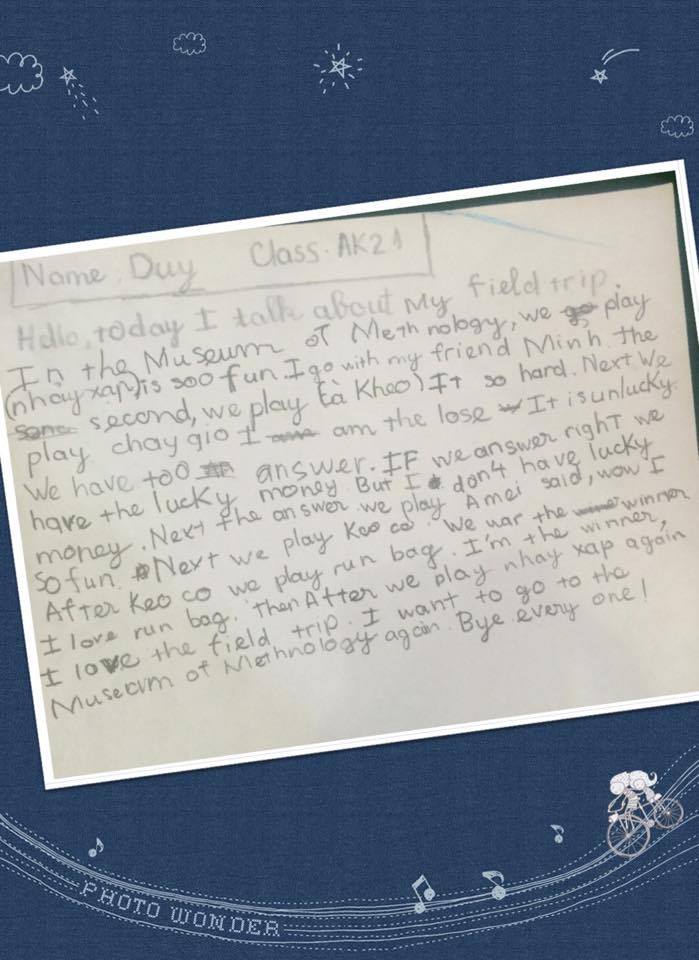 Name. Duy Class. AK21
Hello, today I talk about My field trip.
In the Museum of Methnology, we play
(nhảy xạp) is soo fun. I go with my friend Minh. The
second, we play (à Kheo) It so hard. Next We
play chay gio I am the lose It is unlucky.
We have too answer. IF we answer right we
have the lucky money. But I don't have lucky
money. Next the answer we play Amei said, wow I
so fun. Next we play Keo co. We war the winner
After Keo co we play run bag. I'm the winner,
I love run bag. then After we play nhay xap again
I love the field trip. I want to go to the
Museum of Methnology again. Bye every one!
PHOTO WONDER